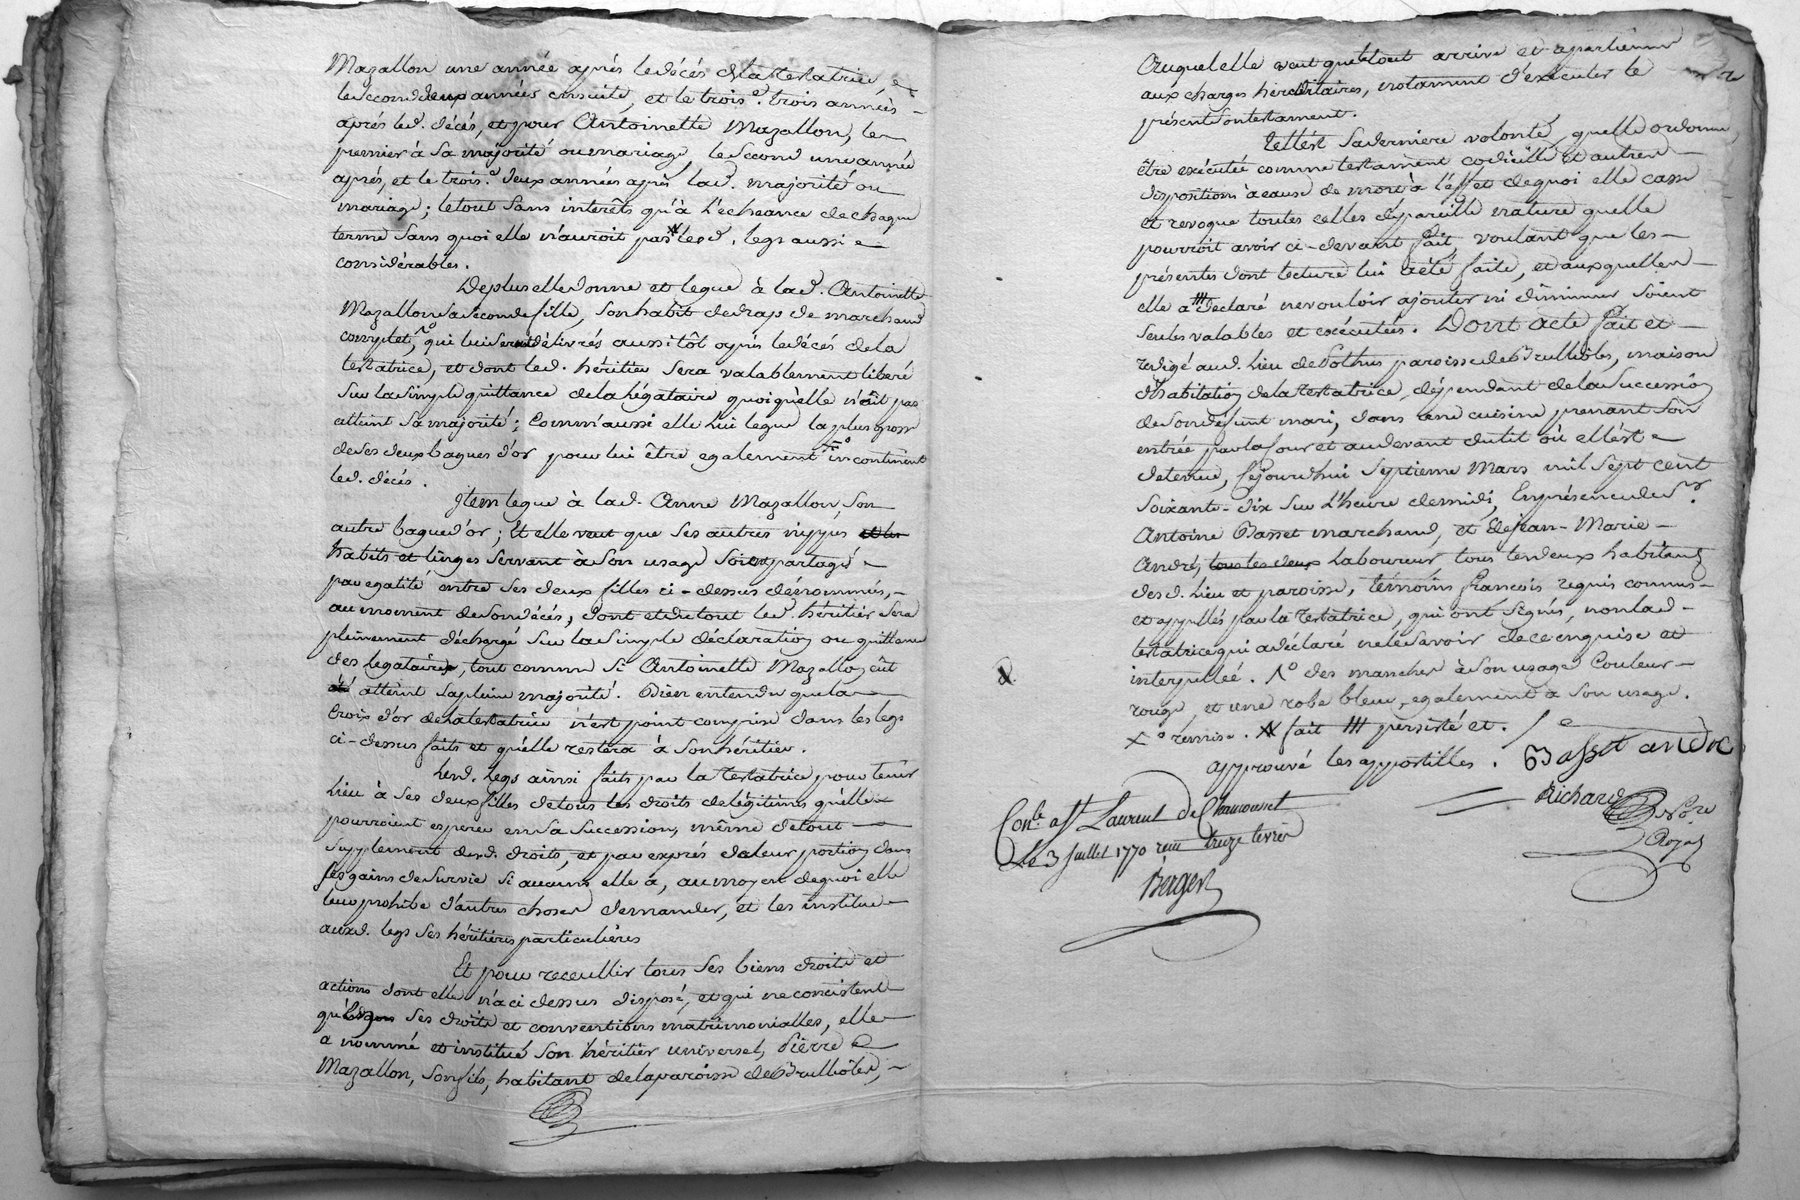 Mazallon une année après le décés de la testatrice, et
le second deux années ensuite, et le trois.e trois années
après led. décés, et pour Antoinette Mazallon, le
premier à sa majorité ou mariage, le second une année
après, et le trois.e deux années après lad. majorité ou
mariage; le tout sans interêts qu'à l'echéance de chaque
terme sans quoi elle n'auroit pas lesd. legs aussi
considérables.
De plus elle donne et legue à lad. Antoinette
Mazallon sa seconde fille, son habit de drap de marchand
complet, qui lui seront délivrés aussitôt après le décés de la
testatrice, et dont led. héritier sera valablement liberé
sur la simple quittance de la légataire quoiqu'elle n'aît pas
atteint sa majorité; comm'aussi elle lui legue la plus grosse
de ses deux bagues d'or pour lui être egalement incontinent
led. décés.
Jtem legue à lad. Anne Mazallon, son
autre bague d'or; Et elle veut que ses autres nippes et les
habits et linges servant à son usage soient partagé
par egalité entre ses deux filles ci-dessus dénommés,
au moment de son décés, dont et du tout led. héritier sera
pleinement déchargé sur la simple déclaration ou quittance
des legataires, tout comme si Antoinette Mazallon eût
été atteint sa pleine majorité. Bien entendu que la
croix d'or de la testatrice n'est point comprise dans les legs
ci-dessus faits et qu'elle restera à son héritier.
Lesd. legs ainsi faits par la testatrice pour tenir
lieu à ses deux filles de tous les droits de légitime qu'elles
pourroient esperer en sa succession, même de tout
supplement desd. droits, et par exprés de leur portion dans
ses gains de survie si aucuns elle a, au moyen de quoi elle
leur prohibe d'autres choses demander, et les institue
auxd. legs ses héritières particulières
Et pour receuillir tous ses biens droits et
actions dont elle n'a ci dessus disposé, et qui ne consistent
qu'en ses droits et conventions matrimonialles, elle
a nommé et institué son héritier universel, Pierre
Mazallon, son fils, habitant de la paroisse de Brullioles,
Auquel elle veut que le tout arrive et apartienne
aux charges héréditaires, notamment d'exécuter le
présent son testament.
Telle est sa derniere volonté, quelle ordonne
être exécutée comme testament codicille et autres
dispositions à cause de mort à l'effet de quoi elle casse
et revoque toutes celles de pareille nature quelle
pourroit avoir ci-devant fait, voulant que les
présentes dont lecture lui a été faite, et auxquelles
elle a déclaré ne vouloir ajouter ni diminuer, soient
seules valables et exécutées. Dont acte fait et
redigé aud. lieu de Pothus paroisse de Brullioles, maison
d'habitation de la testatrice, dépendant de la succession
de son défunt mari, dans une cuisine prenant son
entrée par la cour et au devant du lit où elle est
detenue, Cejourdhui septieme mars mil sept cent
soixante-dix sur l'heure de midi, En présence de sr.
Antoine Basset marchand, et de Jean-Marie
André, tous les deux laboureur, tous les deux habitants
desd. lieu et paroisse, témoins françois requis connus
et appellés par la testatrice, qui ont signés, non lad.
testatrice qui a déclaré ne le savoir de ce enquise et
interpellée. 1° des manches à son usage couleur
rouge, et une robe bleue, egalement à son usage.
X° remise. X fait III persisté et.
approuvé les apportilles. Basset andre
Richard
Con.lé a St Laurent de Chamousset
Le 3 Juillet 1770 reçu treize livres
Berger